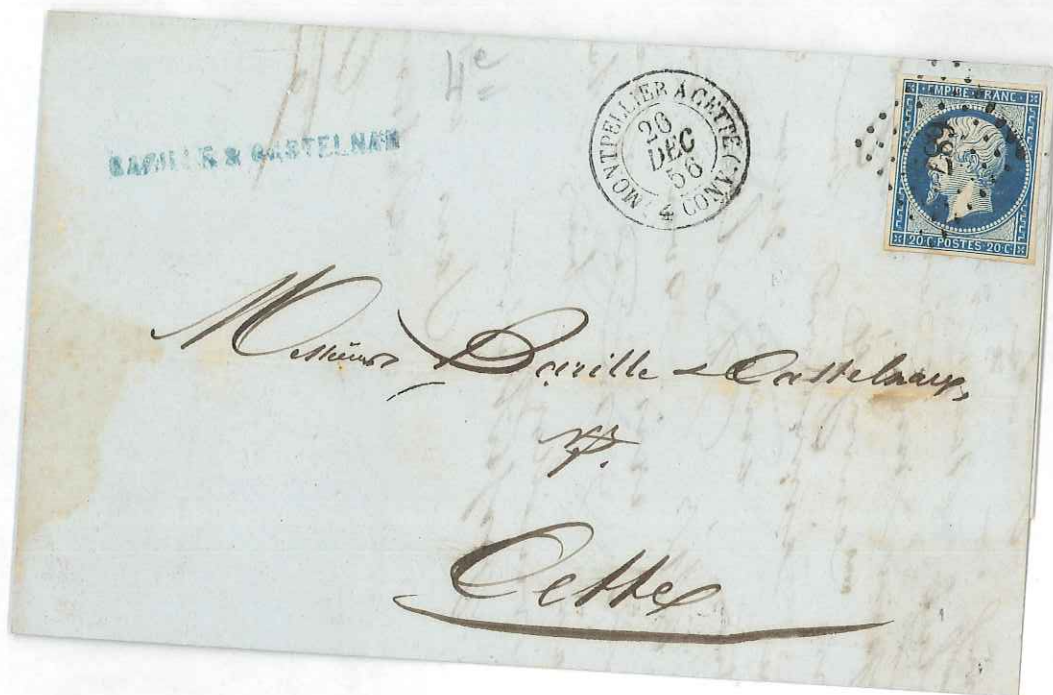 4e
BAZILLE & CASTELNAU
MONTPELLIER A CETTE
20
DEC
56
4
EMPIRE FRANC.
20 C POSTES 20 C
Messieurs Bazille & Castelnau,
Cette